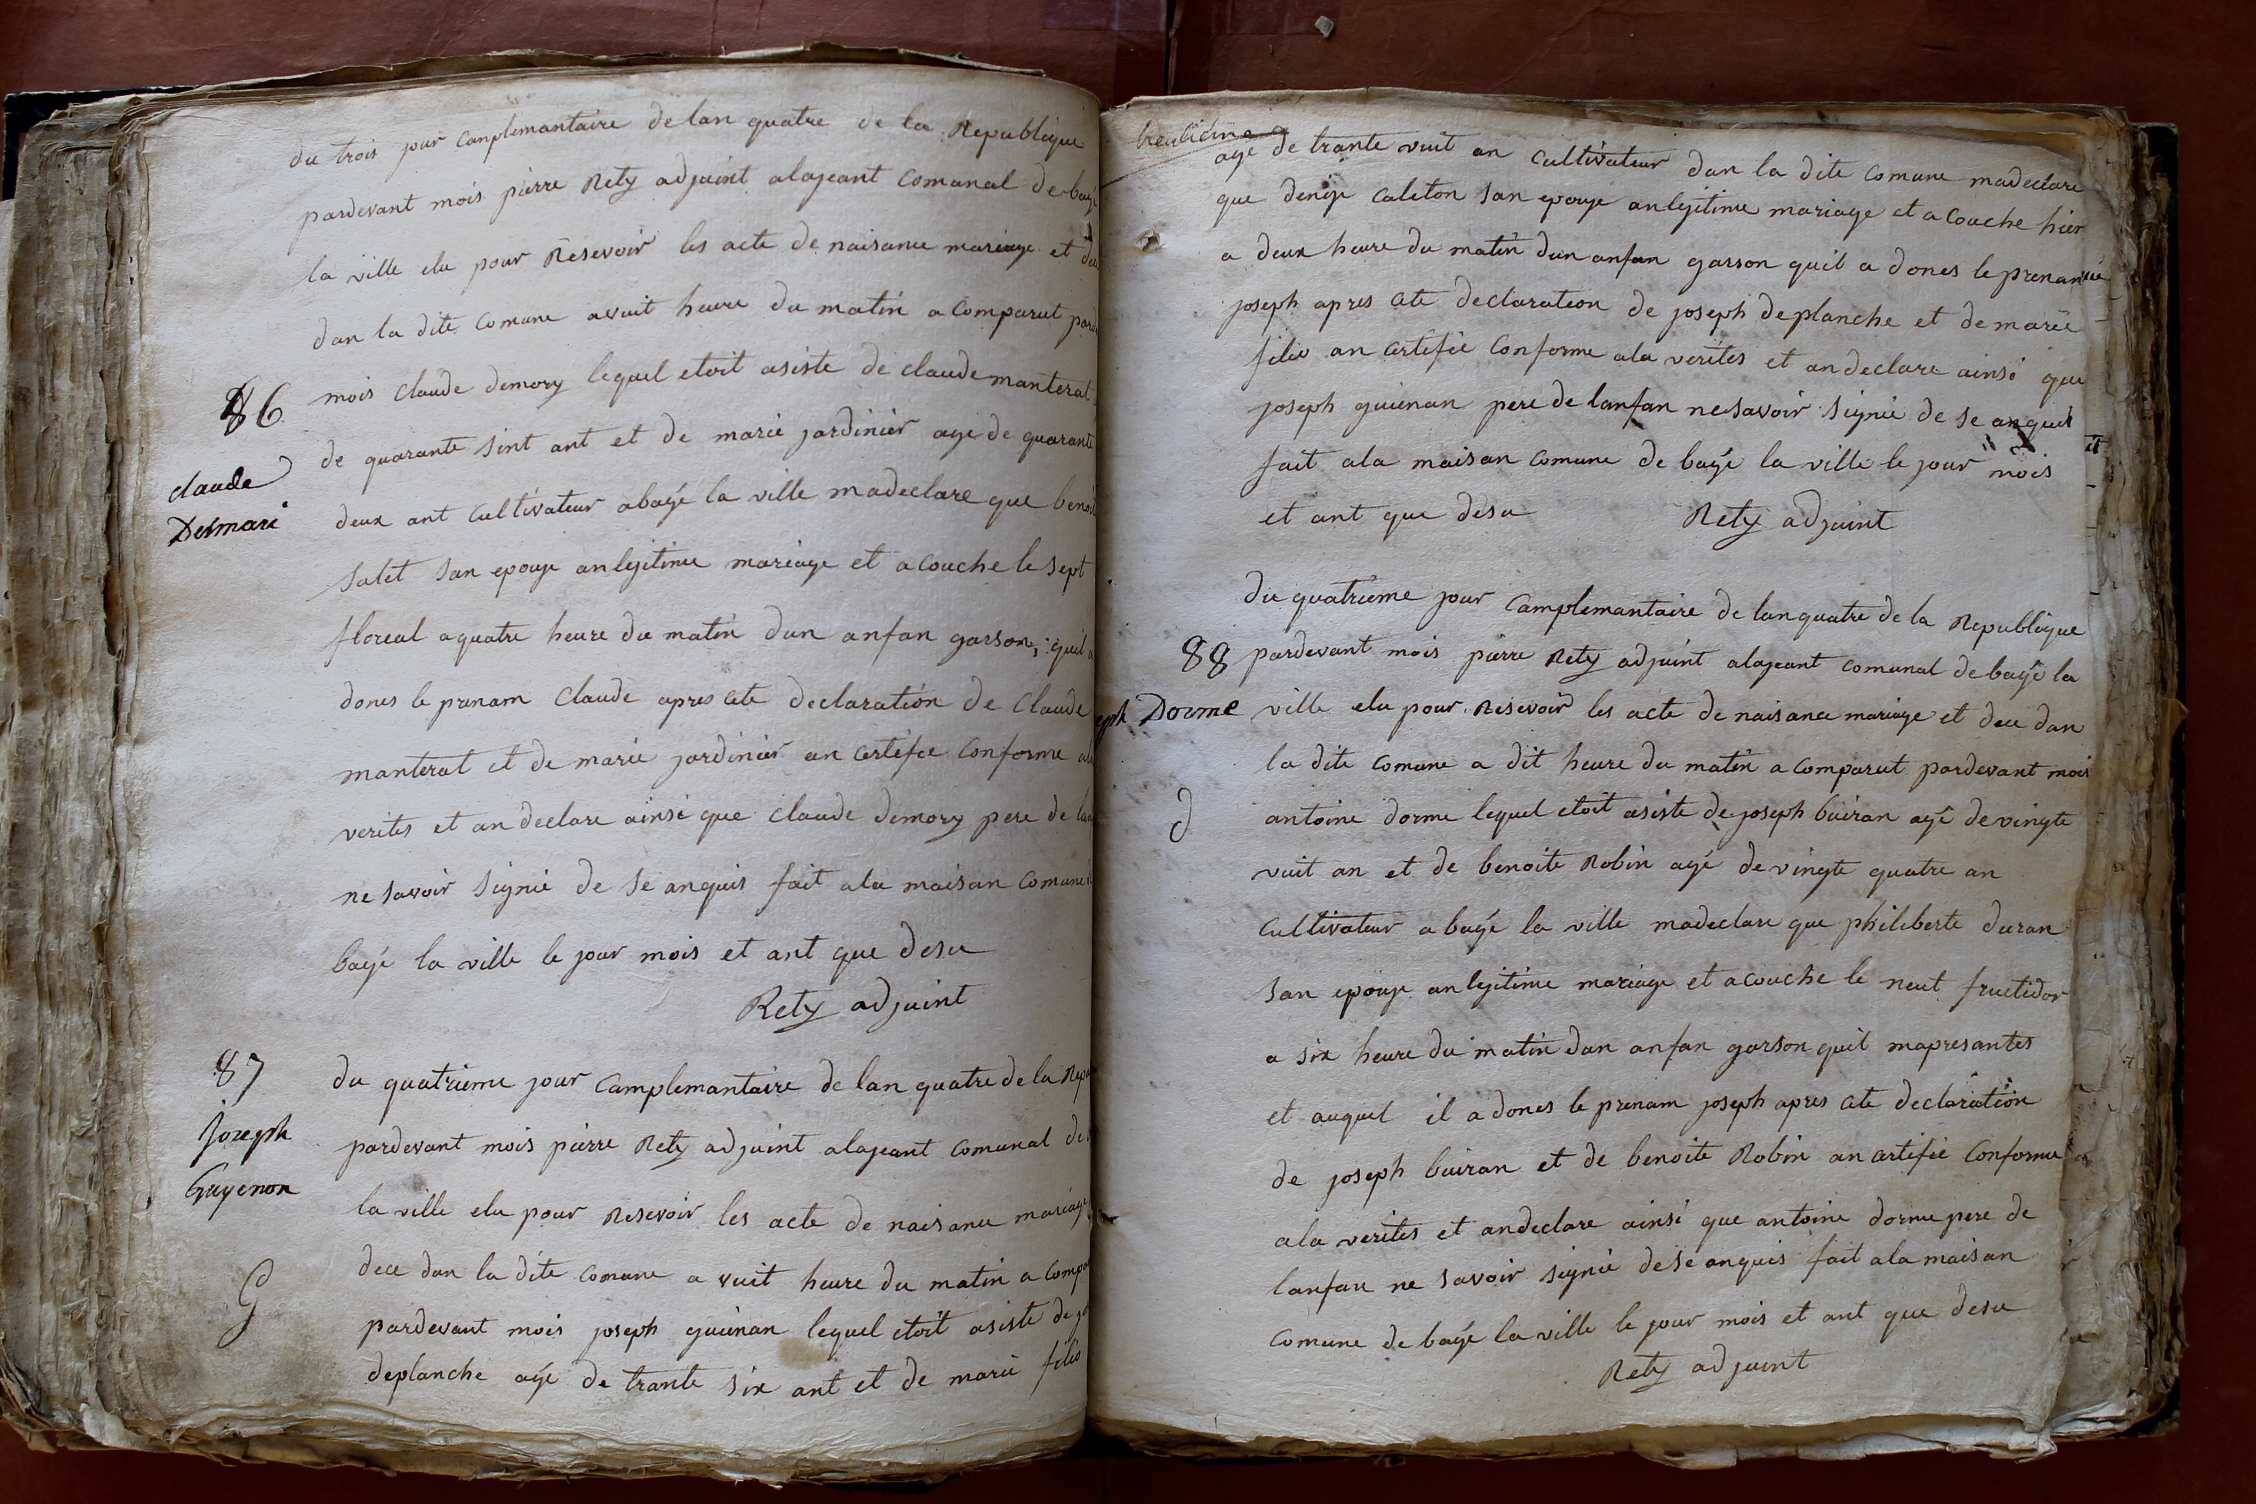 du trois jour camplemantaire de lan quatre de la Republique
pardevant mois pierre Rety adjoint alajeant comunal de bagé
la ville elu pour Resevoir les acte de naisance mariage et
dan la dite comune a vuit heure du matin a comparut
mois claude demory lequel etoit asiste de claude manterat
86
de quarante sint ant et de marie jardinier age de quarante
claude
Desmari
deux ant cultivateur a bagé la ville madeclare que
Salet san epouje anlejitime mariage et a couche le sept
floreal a quatre heure du matin dun anfan garson, quil a
dones le prenam claude apres cete declaration de claude
manterat et de marie jardinier an certifee conforme
verites et an declare ainsi que claude demory pere de
ne savoir signié de se anquis fait ala maisan comune
bagé la ville le jour mois et ant que desu
Rety adjoint
87
Joseph
Guyenon
G
du quatrieme jour camplemantaire de lan quatre de la
pardevant mois pierre Rety adjoint alajeant comunal de
la ville elu pour Resevoir les acte de naisance mariage
dece dan la dite comune a vuit heure du matin a
pardevant mois joseph guienan lequel etoit asiste de
deplanche agé de trante six ant et de marie filio
age de trante vuit an cultivateur dan la dite comune madeclare
que denije caleton san epouje anlejitime mariage et a couche hier
a deux heure du matin dun anfan garson quil a dones le prenam
joseph apres cete declaration de joseph deplanche et de marie
filio an certifié conforme ala verites et an declare ainsi que
joseph guienan pere de lanfan ne savoir signié de se anquis
fait ala maisan comune de bagé la ville le jour mois
et ant que desu
Rety adjoint
du quatrieme jour camplemantaire de lan quatre de la Republique
88
pardevant mois pierre Rety adjoint alajeant comunal de bagé la
Dorme
ville elu pour Resevoir les acte de naisance mariage et dece dan
la dite comune a dit heure du matin a comparut pardevant mois
d
antoine dorme lequel etoit asiste de joseph buiran agé de vingte
vuit an et de benoite Robin agé de vingte quatre an
cultivateur a bagé la ville madeclare que philiberte duran
san epouje anlejitime mariage et a couche le neut fructidor
a six heure du matin dun anfan garson quil mapresantes
et auquel il a dones le prenam joseph apres cete declaration
de joseph buiran et de benoite Robin an certifié conforme
ala verites et andeclare ainsi que antoine dorme pere de
lanfan ne savoir signié de se anquis fait ala maisan
comune de bagé la ville le jour mois et ant que desu
Rety adjoint